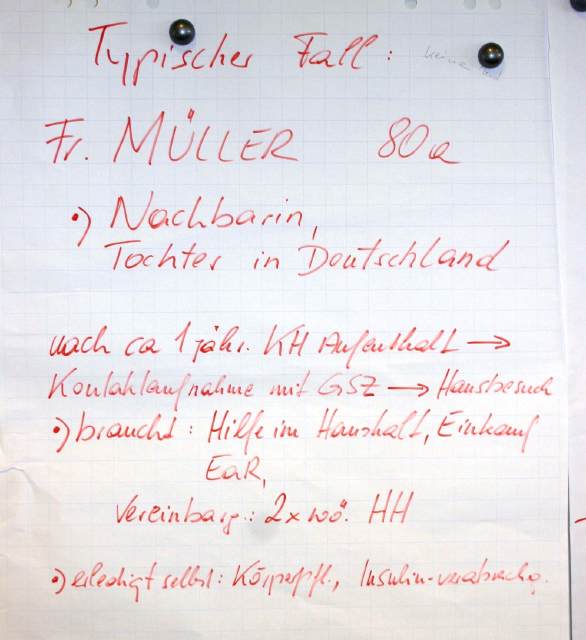 Typischer Fall:
keine
Fr. MÜLLER 80a
•) Nachbarin,
Tochter in Deutschland
nach ca 1 jähr. KH Aufenthalt →
Kontaktaufnahme mit GSZ → Hausbesuch
•) braucht: Hilfe im Haushalt, Einkauf
EaR,
Vereinbarg.: 2x wö. HH
•) erledigt selbst: Körperpfl., Insulin-verabrechg.